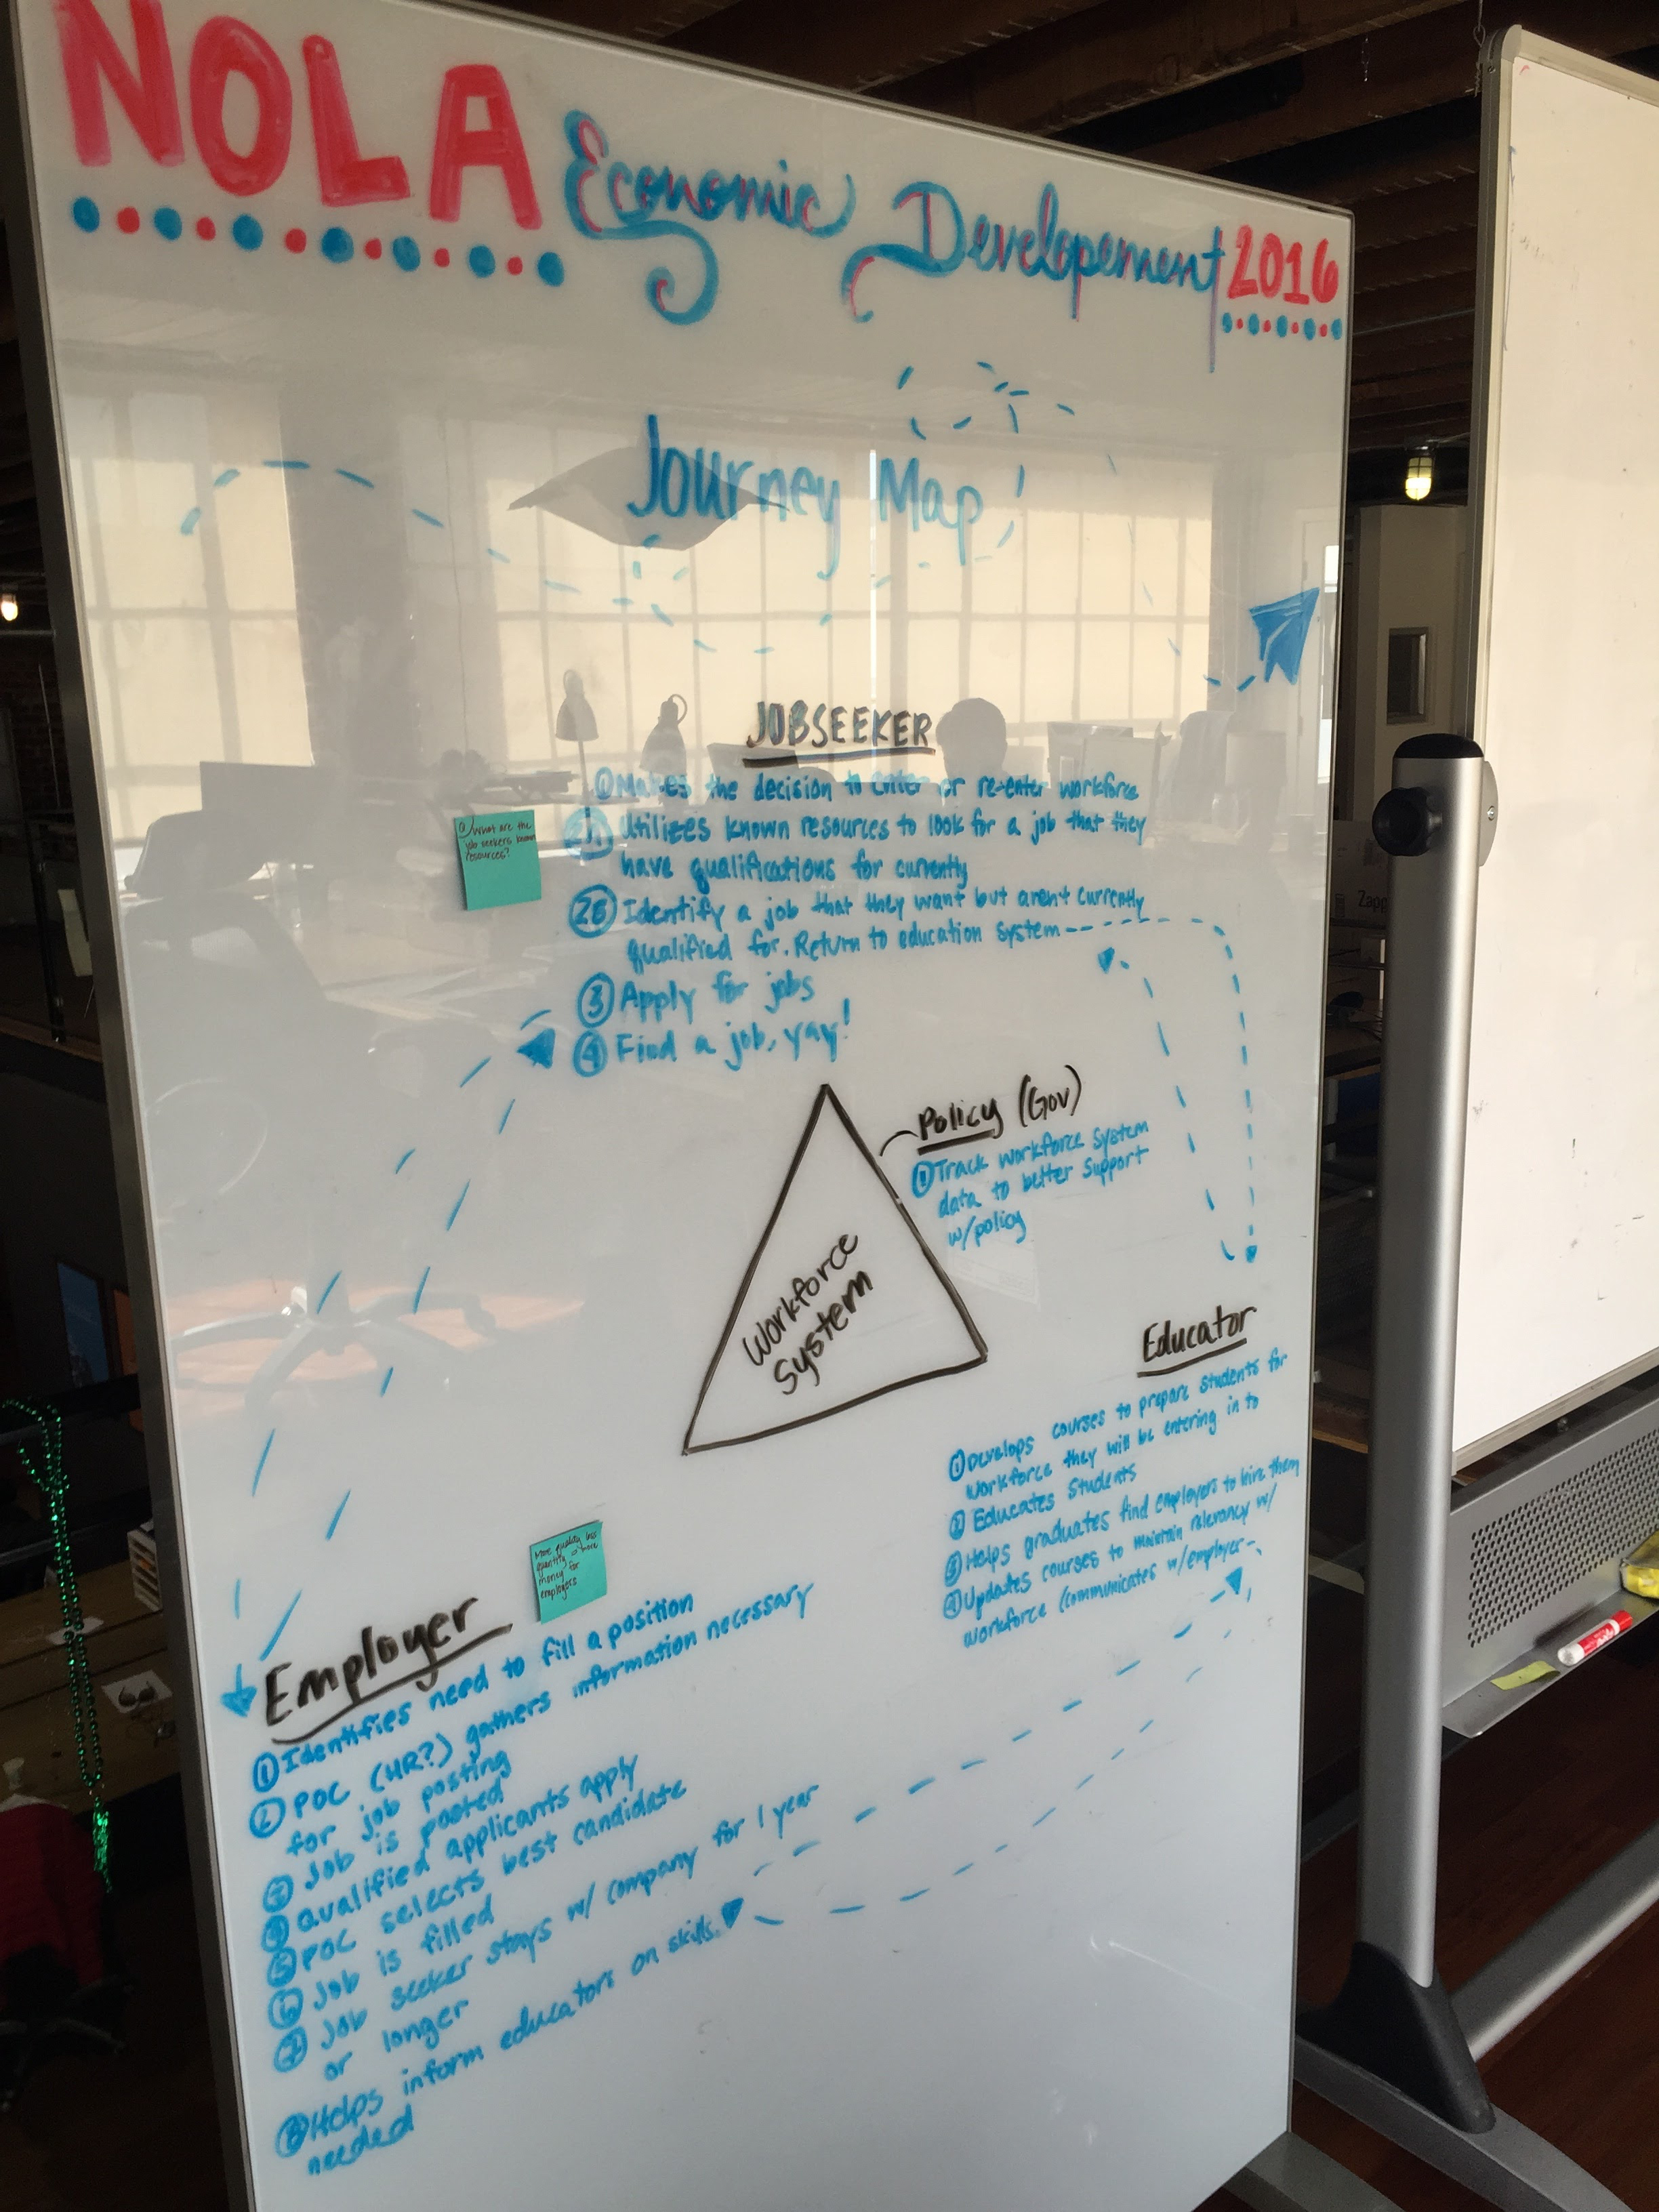 NOLA Economic Developement 2016
Journey Map
JOBSEEKER
① Makes the decision to enter or re-enter workforce
Utilizes known resources to look for a job that they
have qualifications for currently
2B Identify a job that they want but arent currently
qualified for. Return to education system
③ Apply for jobs
④ Find a job, yay!
What are the
job seekers known
resources?
Policy (Gov)
① Track workforce system
data to better support
w/policy
Workforce
System
Educator
① Develops courses to prepare students for
workforce they will be entering in to
② Educates Students
③ Helps graduates find employers to hire them
④ Updates courses to maintain relevancy w/
workforce (communicates w/employer
More quality, less
quantity = more
money for
employers
Employer
① Identifies need to fill a position
② POC (HR?) gathers information necessary
for job posting
③ Job is posted
④ Qualified applicants apply
⑤ POC selects best candidate
⑥ Job is filled
⑦ Job seeker stays w/ company for 1 year
or longer
⑧ Helps inform educators on skills
needed
Zapp